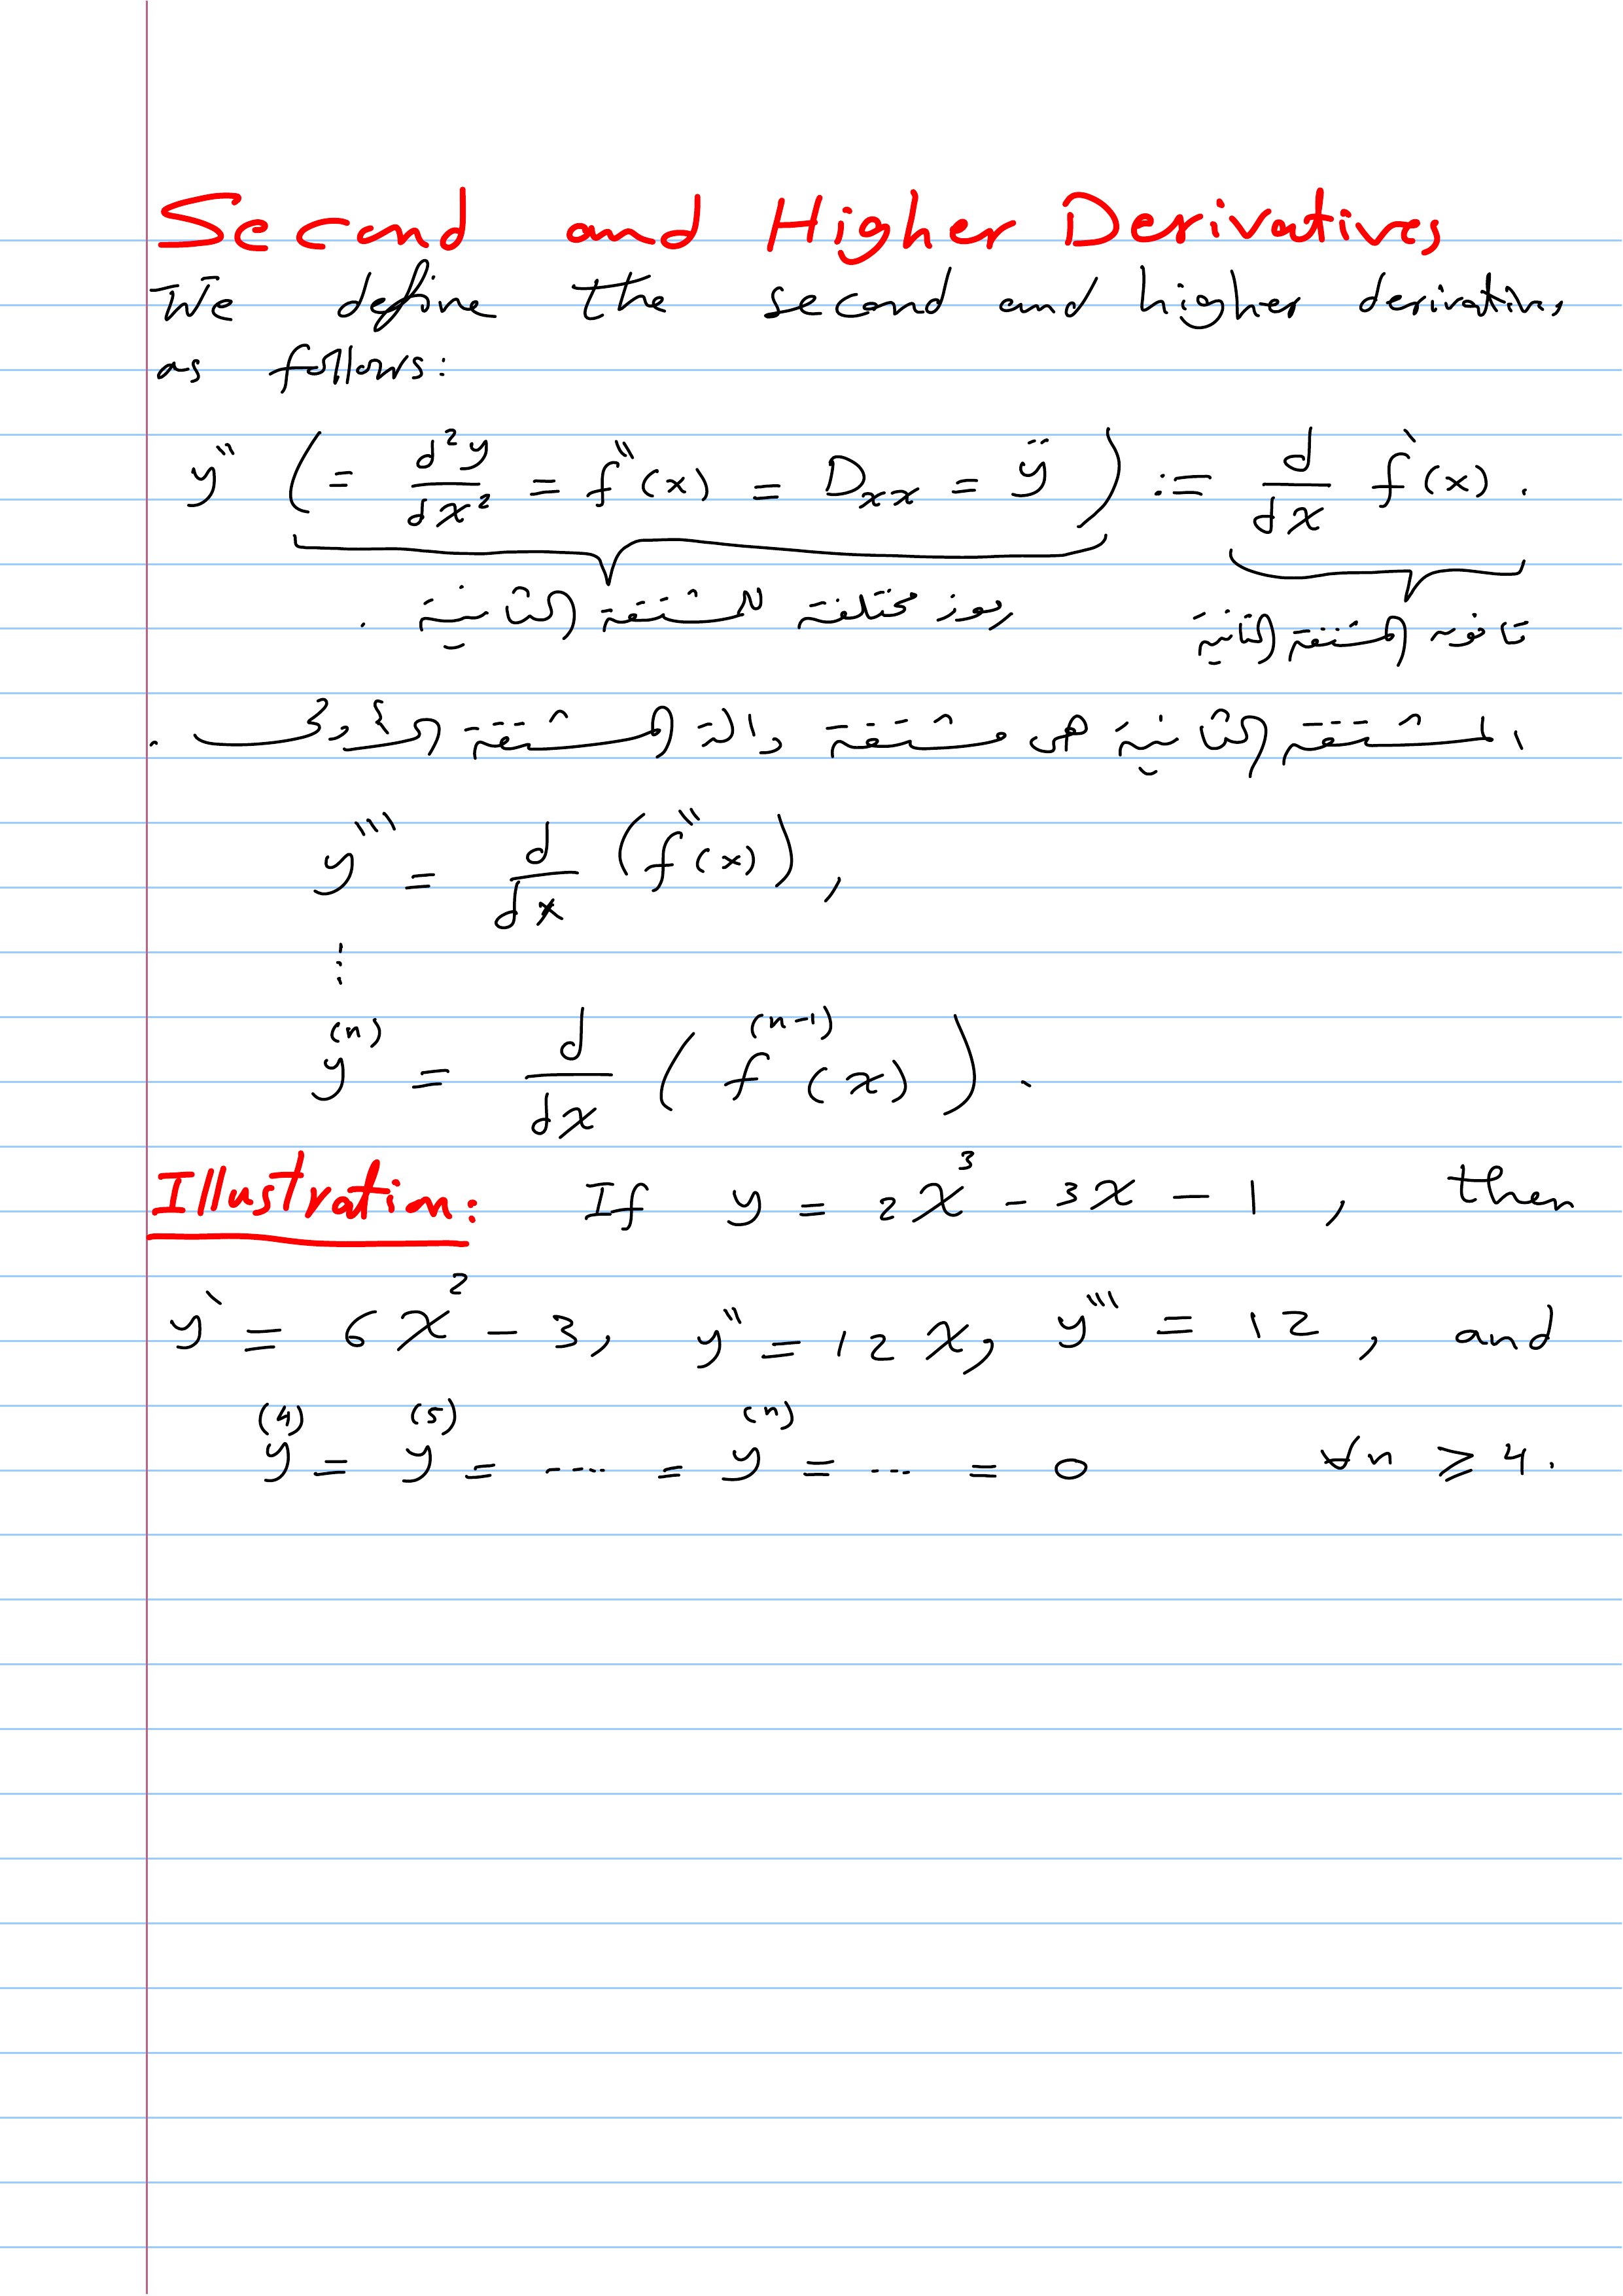 Second and Higher Derivatives
We define the second and higher derivatives
as follows:
y'' ( = d²y/dx² = f''(x) = D_xx = ÿ ) := d/dx f'(x).
رموز مختلفة للمشتقة الثانية . قانون المشتقة الثانية
المشتقة الثانية هي مشتقة دالة المشتقة الأولى .
y''' = d/dx (f''(x)),
⋮
y⁽ⁿ⁾ = d/dx ( f⁽ⁿ⁻¹⁾(x) ).
Illustration: If y = 2x³ - 3x - 1 , then
y' = 6x² - 3, y'' = 12x, y''' = 12 , and
y⁽⁴⁾ = y⁽⁵⁾ = .... = y⁽ⁿ⁾ = ... = 0 ∀n ≥ 4.